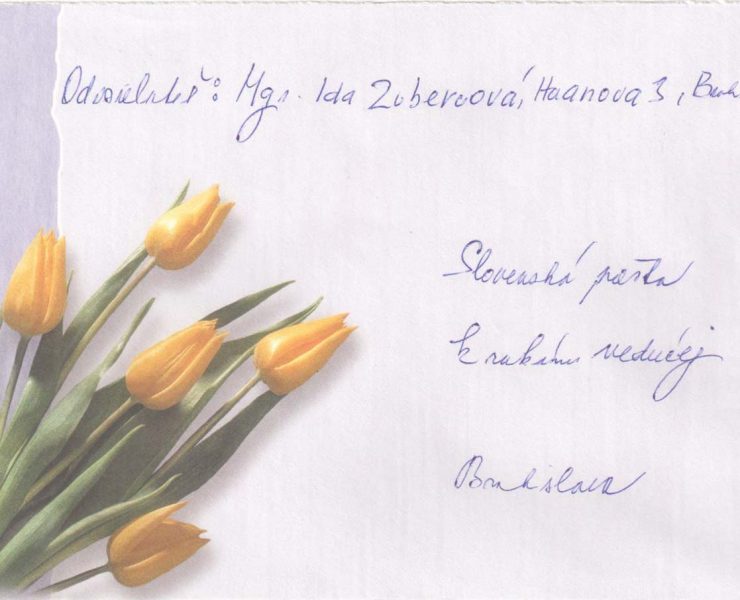 Odosielateľ: Mgr. Ida Zubercová, Haanova 3,
Slovenská pošta
k rukám vedúcej
Bratislava